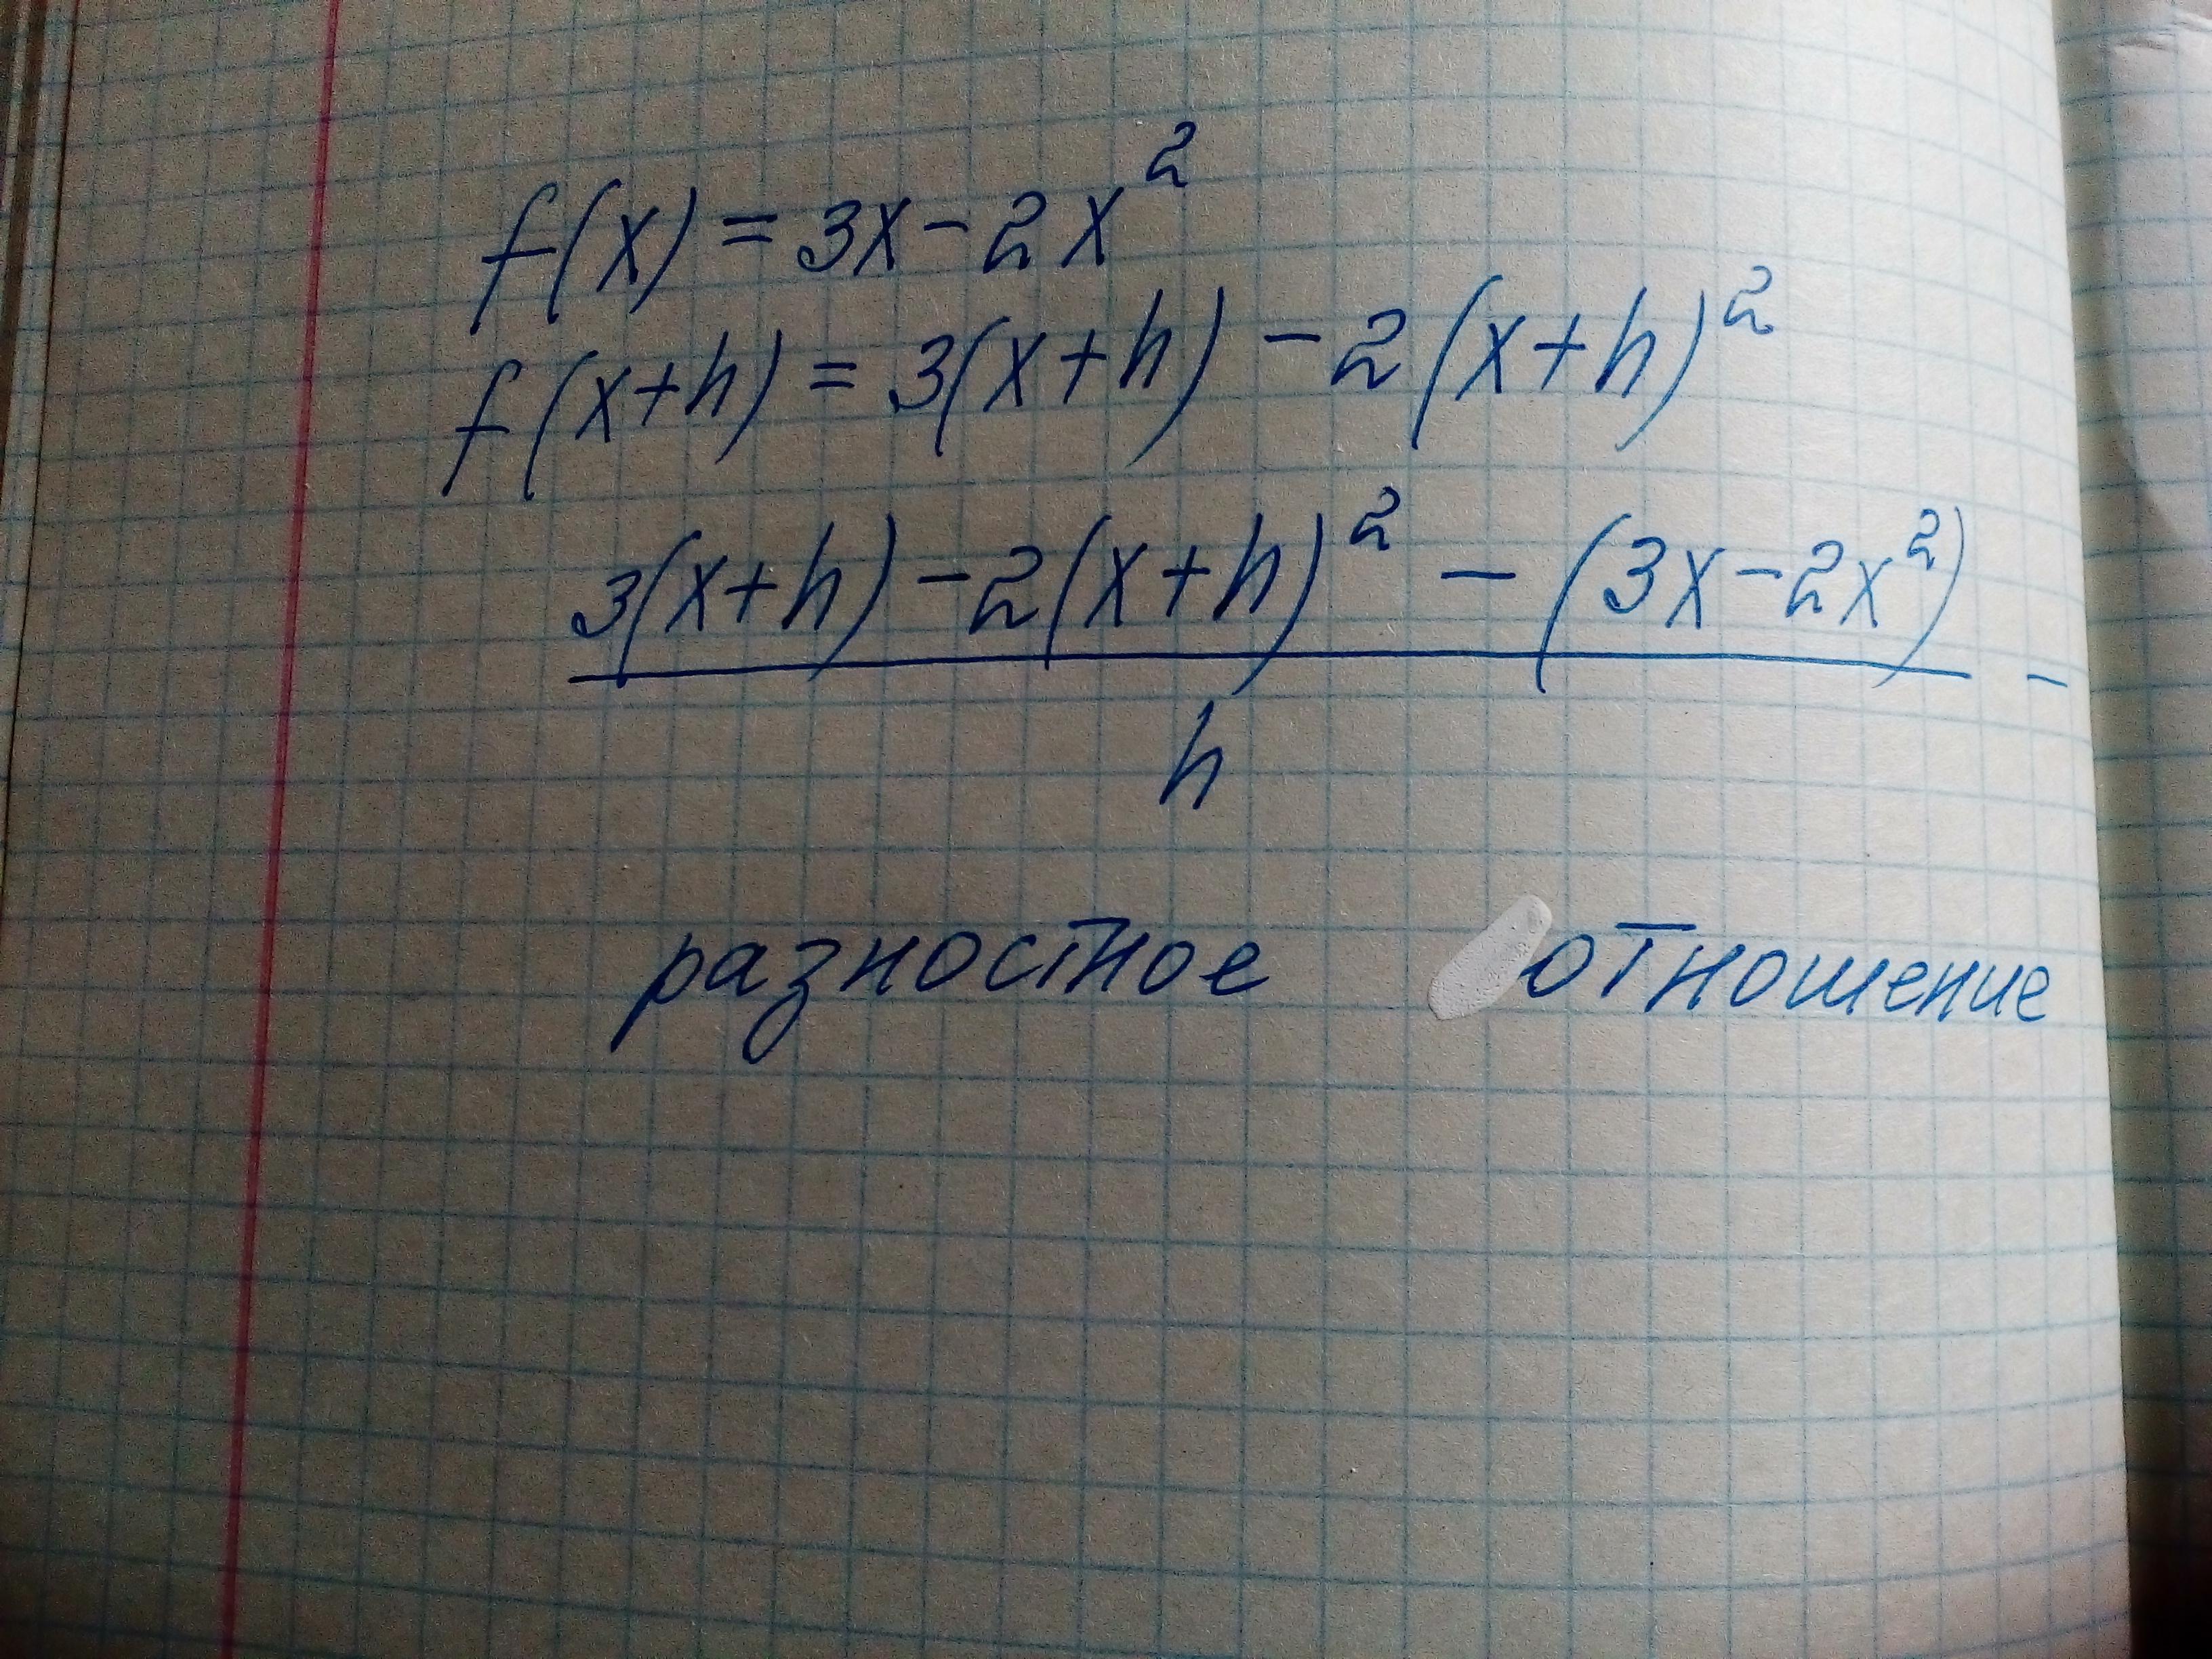 f(x) = 3x - 2x²
f(x+h) = 3(x+h) - 2(x+h)²
3(x+h) - 2(x+h)² - (3x - 2x²) -
h
разностное отношение